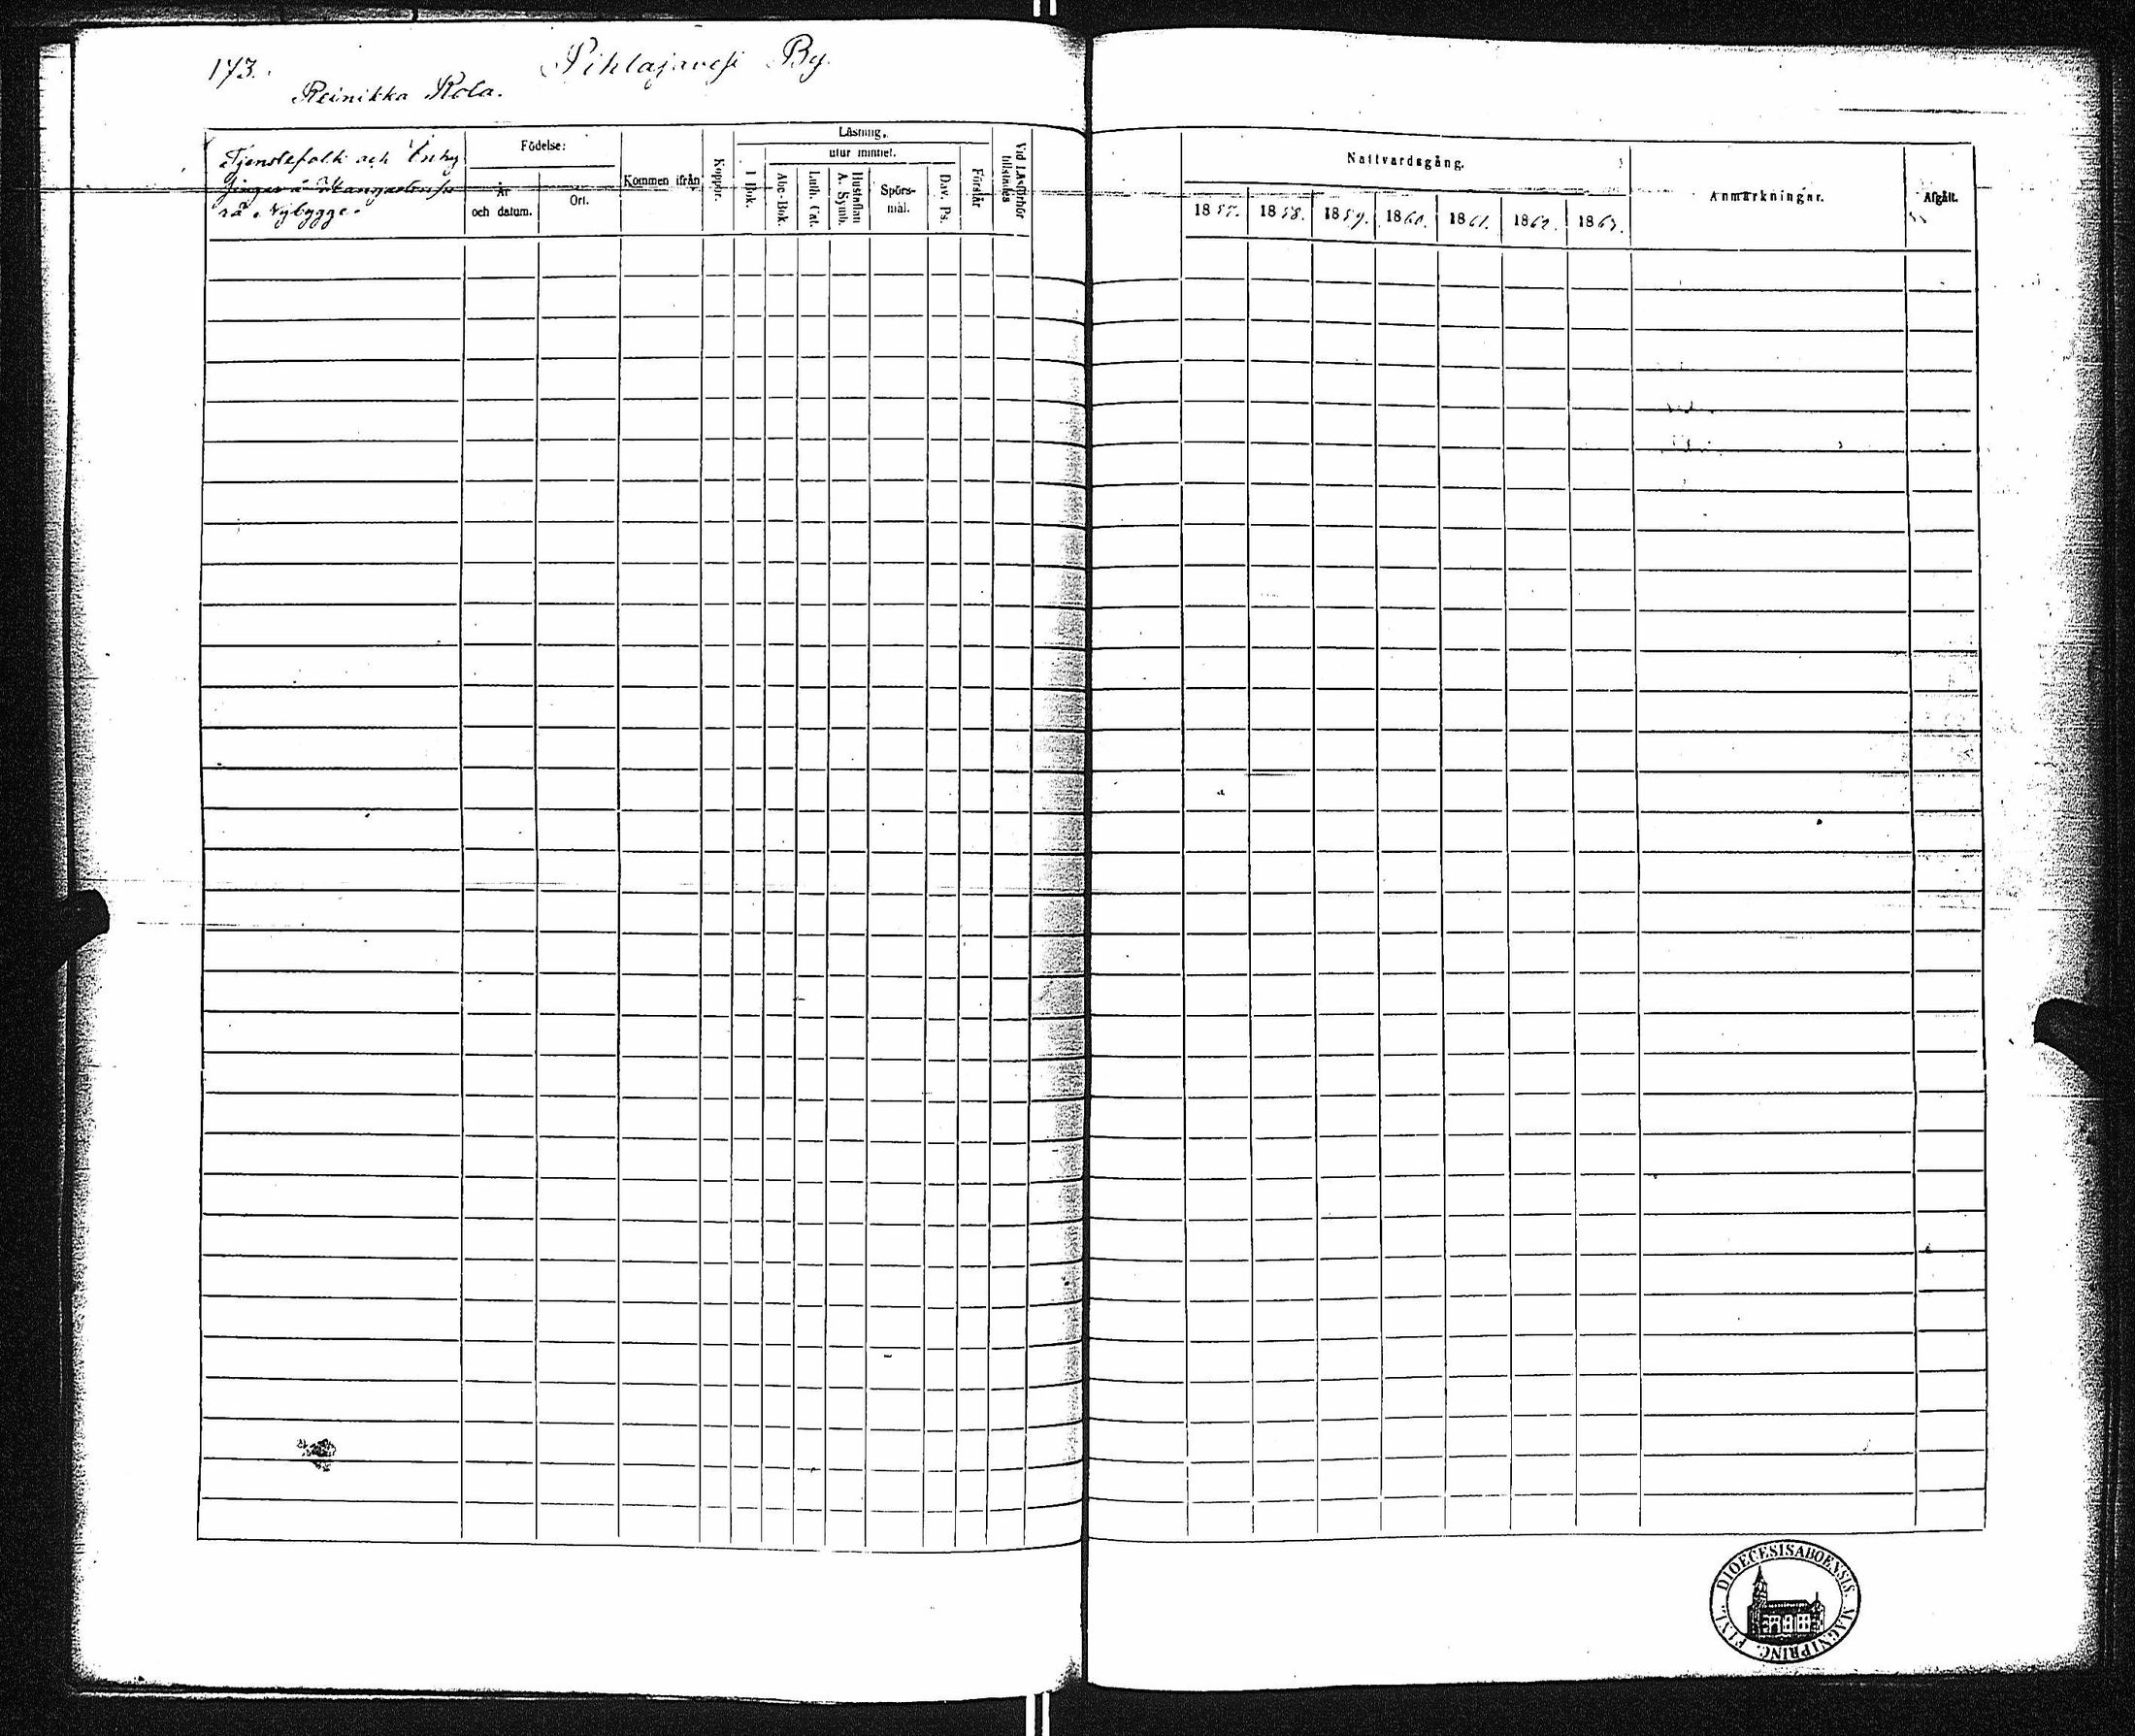 173.
Pihlajavesi By.
Reinikka Rota.
Tjenstefolk och Inhy
singar å
rå Nybygge.
Födelse:
År
och datum.
Ort.
Kommen ifrån
Koppor.
Läsning.
I Bok.
utur minnet.
Abc-Bok.
Luth. Cat.
Hustaflan
A. Symb.
Spörs-
mål.
Dav. Ps.
Förstår
Vid Läsförhör
tillstädes
Nattvardsgång.
1857.
1858.
1859.
1860.
1861.
1862.
1863.
Anmärkningar.
Afgått.
DIOECESISABOENSIS. MAGNIPRINC. FINL.